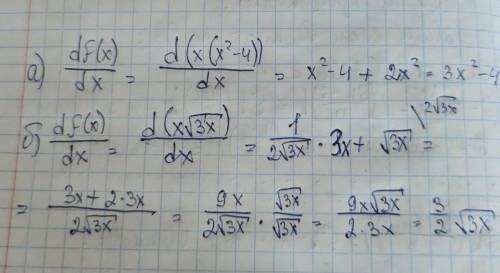 а) df(x)/dx = d(x(x²-4))/dx = x²-4 + 2x² = 3x²-4
б) df(x)/dx = d(x√3x)/dx = 1/(2√3x) · 3x + √3x \2√3x =
= (3x + 2·3x)/(2√3x) = 9x/(2√3x) · √3x/√3x = 9x√3x/(2·3x) = 3/2 √3x